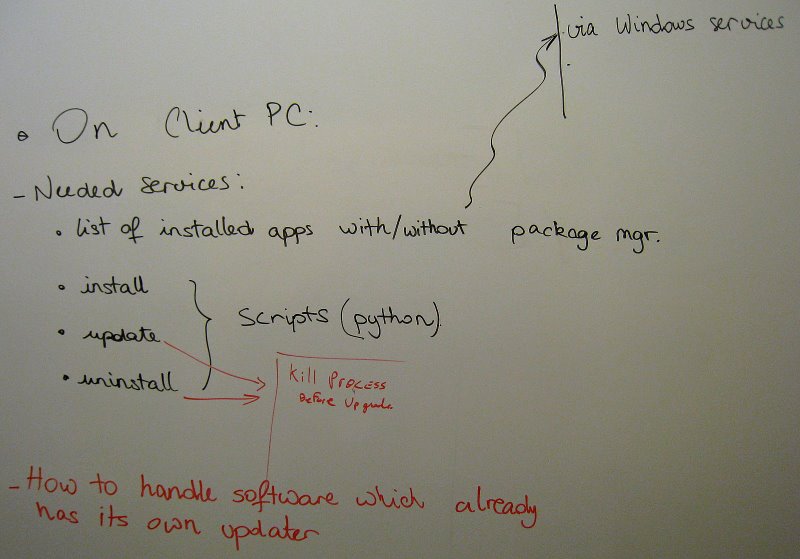 via Windows services
On Client PC:
- Needed services:
• list of installed apps with/without package mgr.
• install
• update
• uninstall
Scripts (python)
Kill Process
Before Upgrade.
- How to handle software which already
has its own updater